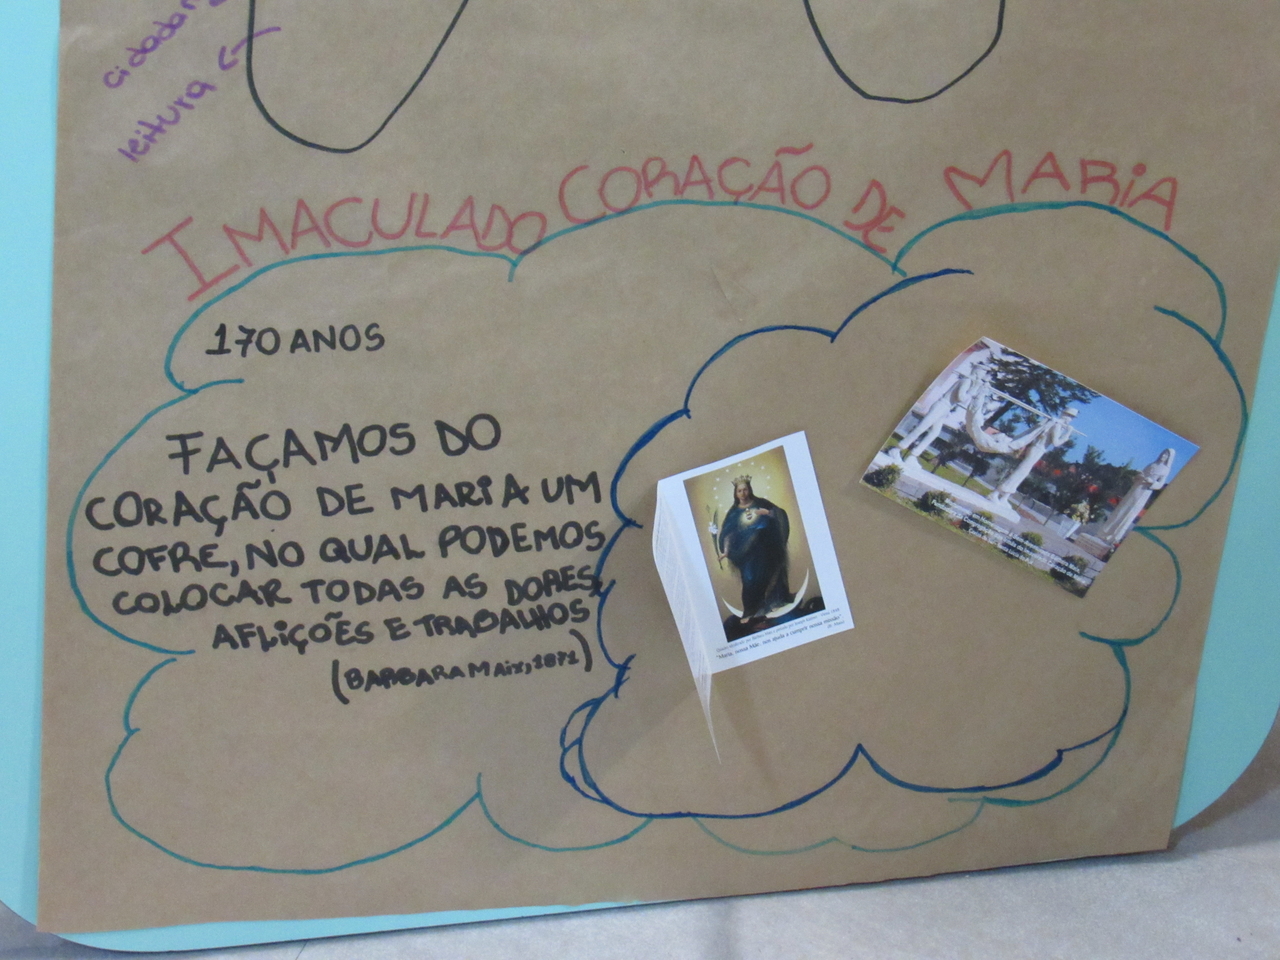 cidadan
leitura
IMACULADO CORAÇÃO DE MARIA
170 ANOS
FAÇAMOS DO
CORAÇÃO DE MARIA UM
COFRE, NO QUAL PODEMOS
COLOCAR TODAS AS DORES,
AFLIÇÕES E TRABALHOS
(BARBARA MAIX, 1871)
"Maria, nossa Mãe, nos ajude a cumprir nossa missão"